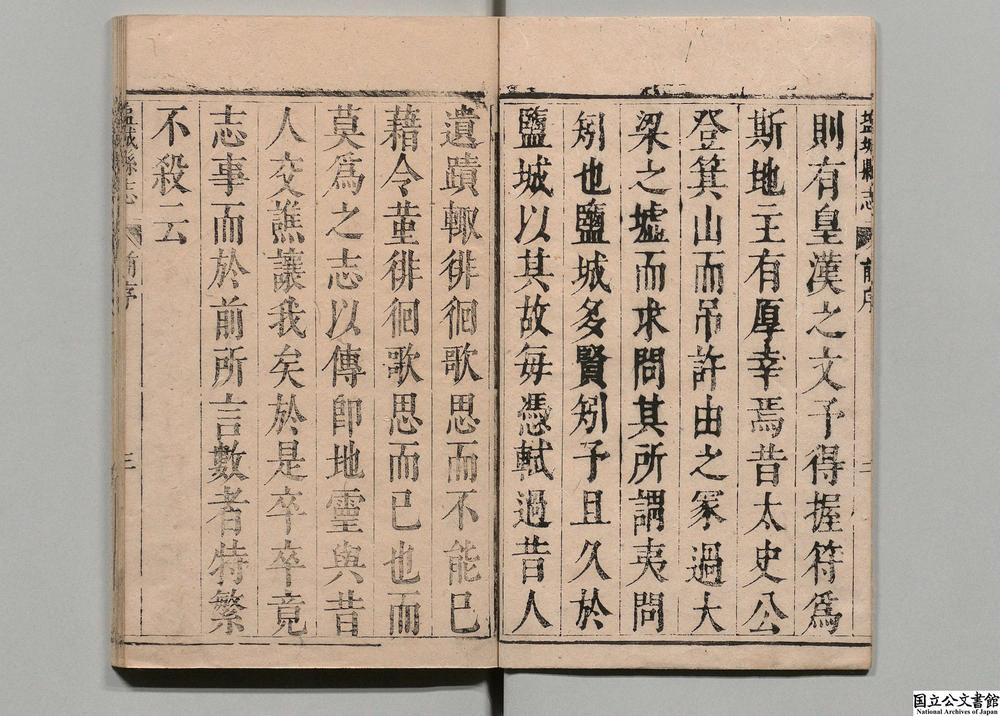 鹽城縣志
前序
二
則有皇漢之文予得握符爲
斯地主有厚幸焉昔太史公
登箕山而吊許由之冢過大
梁之墟而求問其所謂夷問
矧也鹽城多賢矧予且久於
鹽城以其故每憑軾過昔人
遺蹟輙徘徊歌思而不能已
藉令菫徘徊歌思而已也而
莫爲之志以傳卽地靈與昔
人交譙讓我矣於是卒卒竟
志事而於前所言數者特繁
不殺云
鹽城縣志
前序
三
国立公文書館
National Archives of Japan